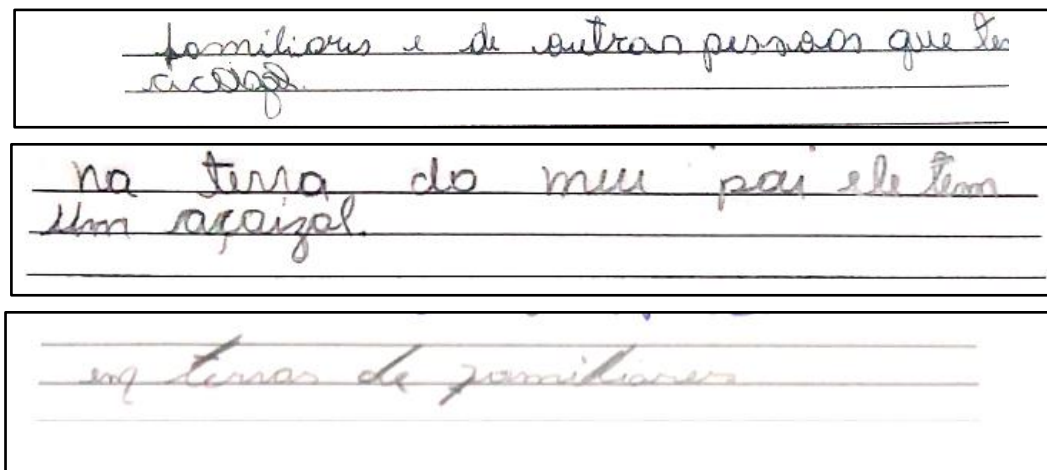 familiares e de outras pessoas que te
na terra do meu pai ele tem
um açaizal.
em terras de familiares